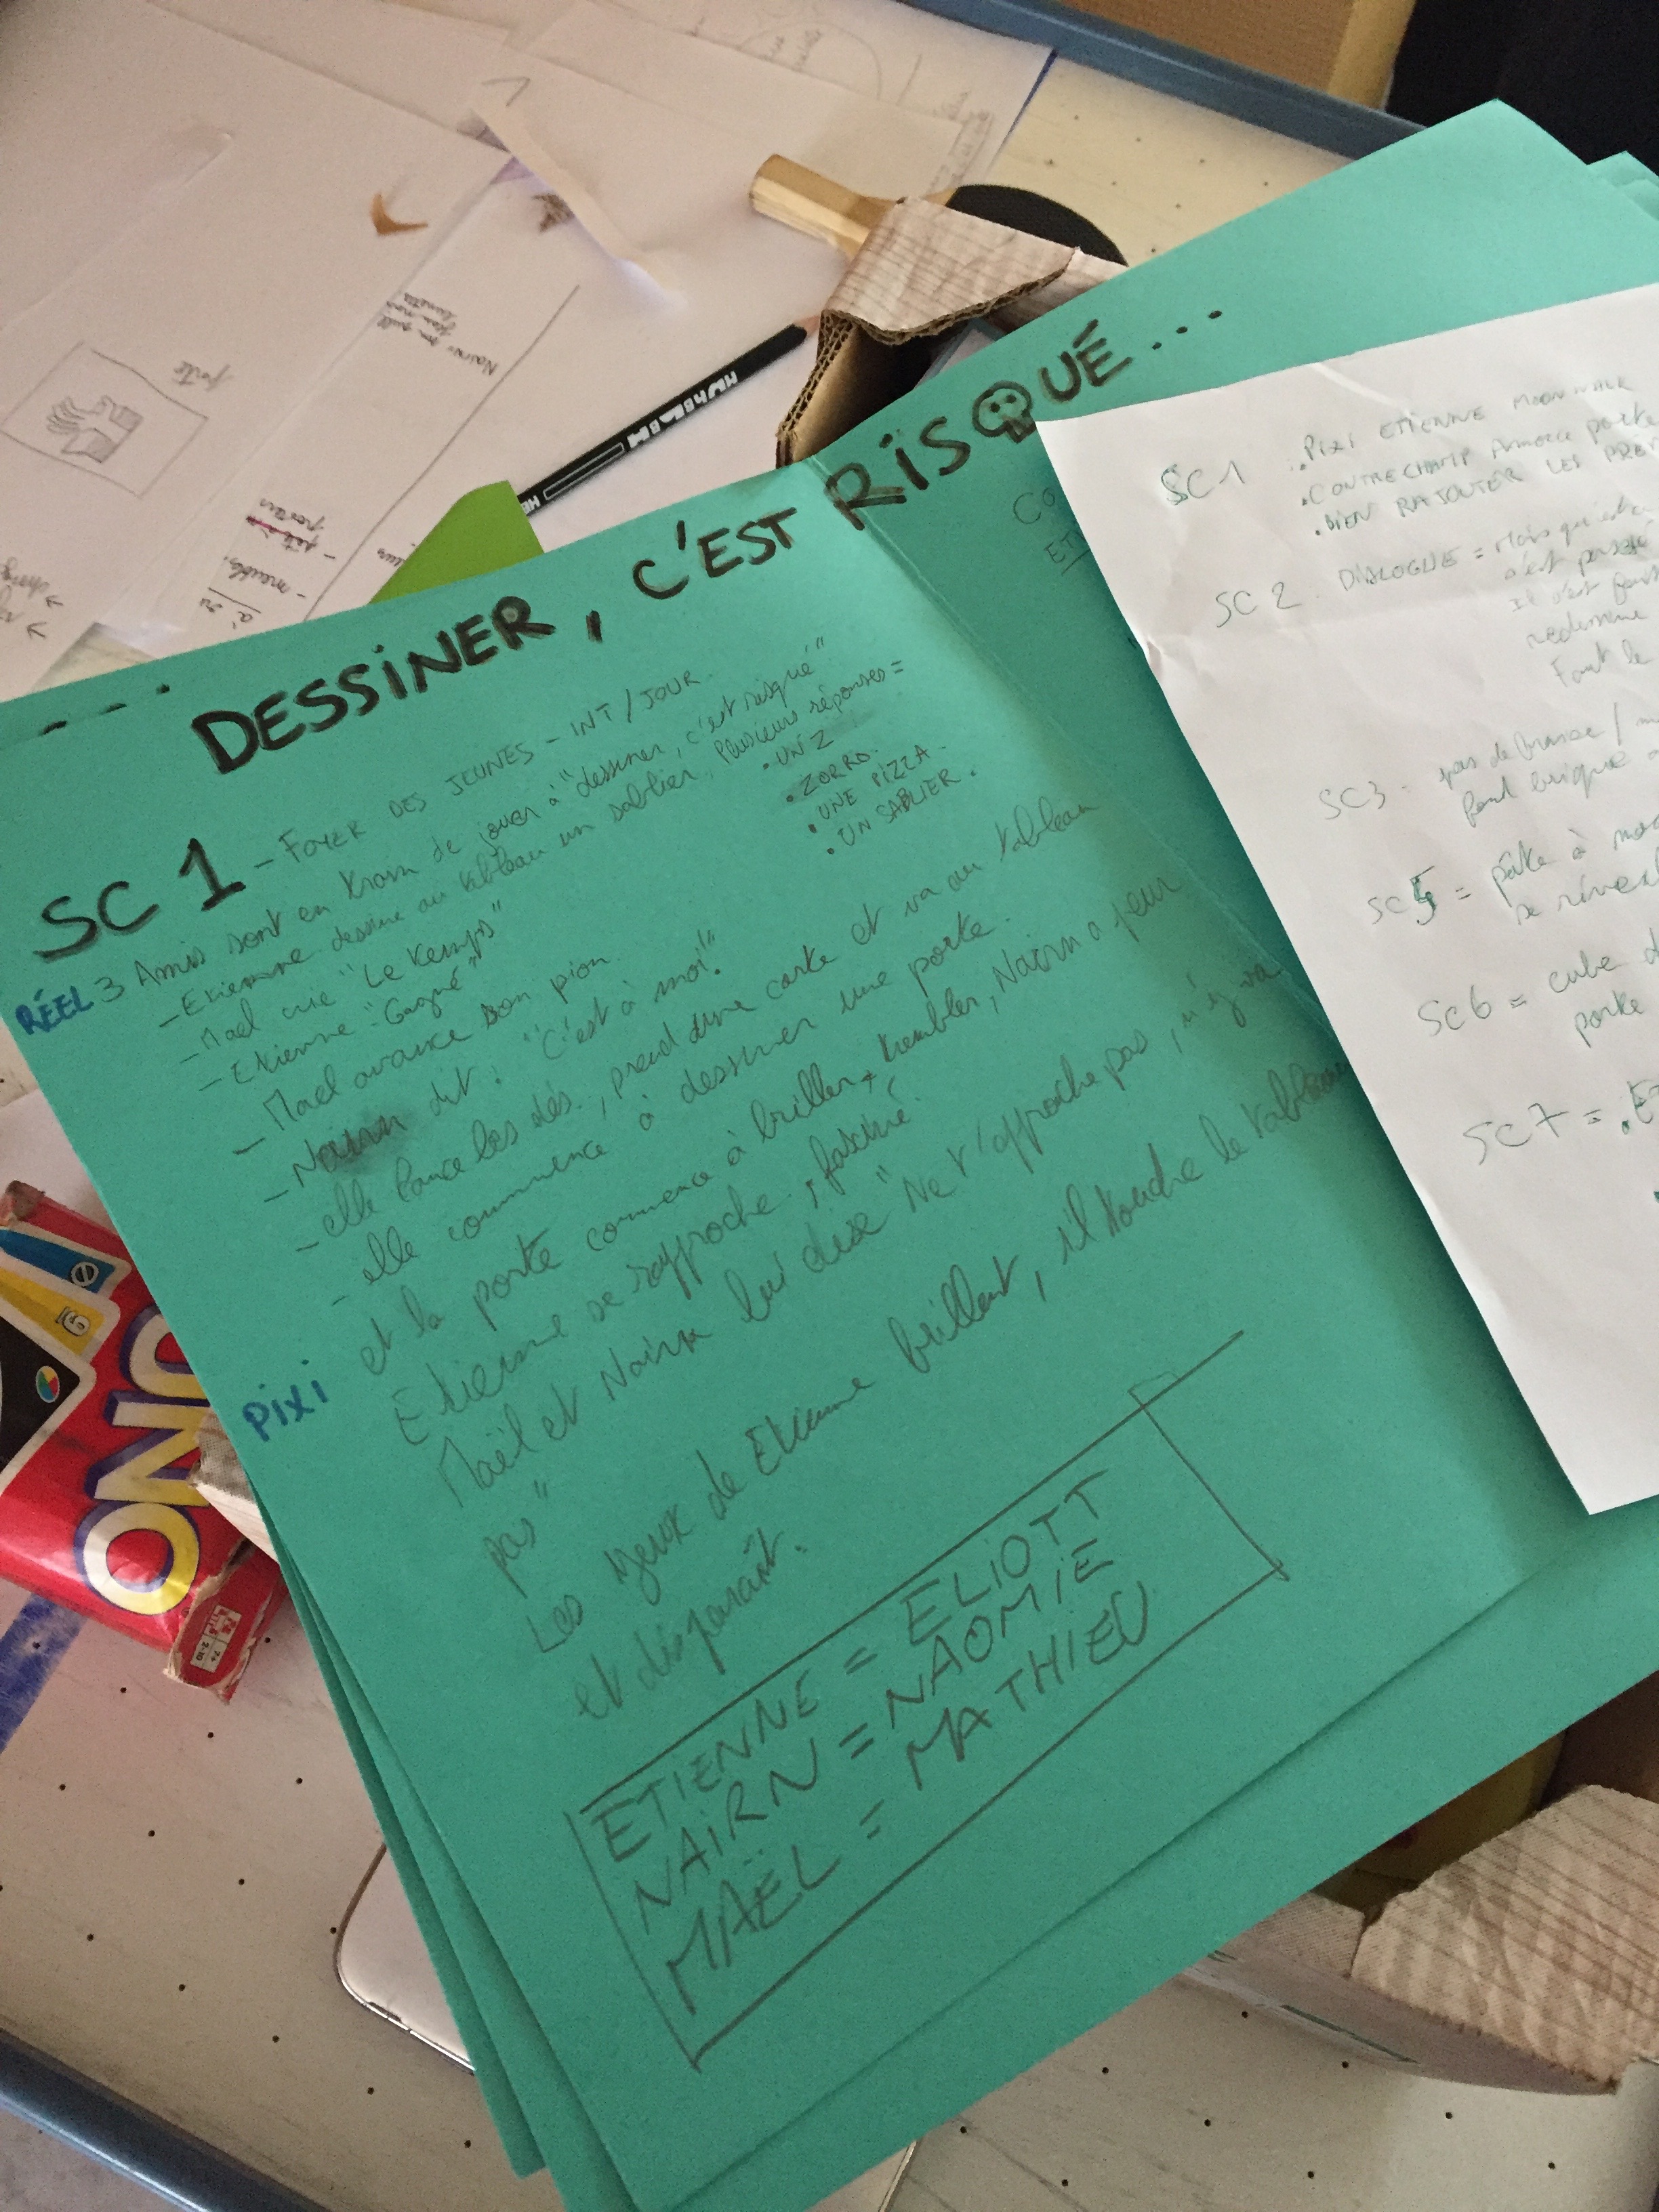 ... DESSINER, C'EST RISQUÉ...
SC 1 - FOYER DES JEUNES - INT / JOUR.
RÉEL 3 Amis sont en train de jouer à "dessiner, c'est risqué"
- Etienne dessine au tableau un sablier. Plusieurs réponses =
• UN Z
• ZORRO.
• UNE PIZZA.
• UN SABLIER.
- Mael crie "Le temps"
- Etienne "Gagné"
- Mael avance son pion.
- Nairn dit: "C'est à moi!"
- elle lance les dés, prend une carte et va au tableau
- elle commence à dessiner une porte.
et la porte commence à briller, trembler, Nairn a peur
PIXI
Etienne se rapproche, fasciné.
Maël et Nairn lui dise "Ne t'approche pas, n'y va
pas"
Les yeux de Etienne brillent, il touche le tableau
et disparait.
ETIENNE = ELIOTT
NAIRN = NAOMIE
MAËL = MATHIEU
CO
ET
SC 1 • PIXI ETIENNE MOONWALK
• CONTRECHAMP Amorce porte
• BIEN RAJOUTER LES
SC 2 DIALOGUE = Mais
s'est passé
Il s'est
redessine
Faut le
SC3 - pas de
SC5 = pâte à
se
SC6 = cube
porte
SC7 =
UNO
porte
- meubles